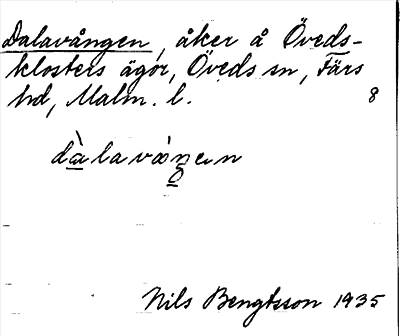 Dalavången, åker å Öveds-
klosters ägor, Öveds sn, Färs
hd, Malm. l. 8
Nils Bengtsson 1935